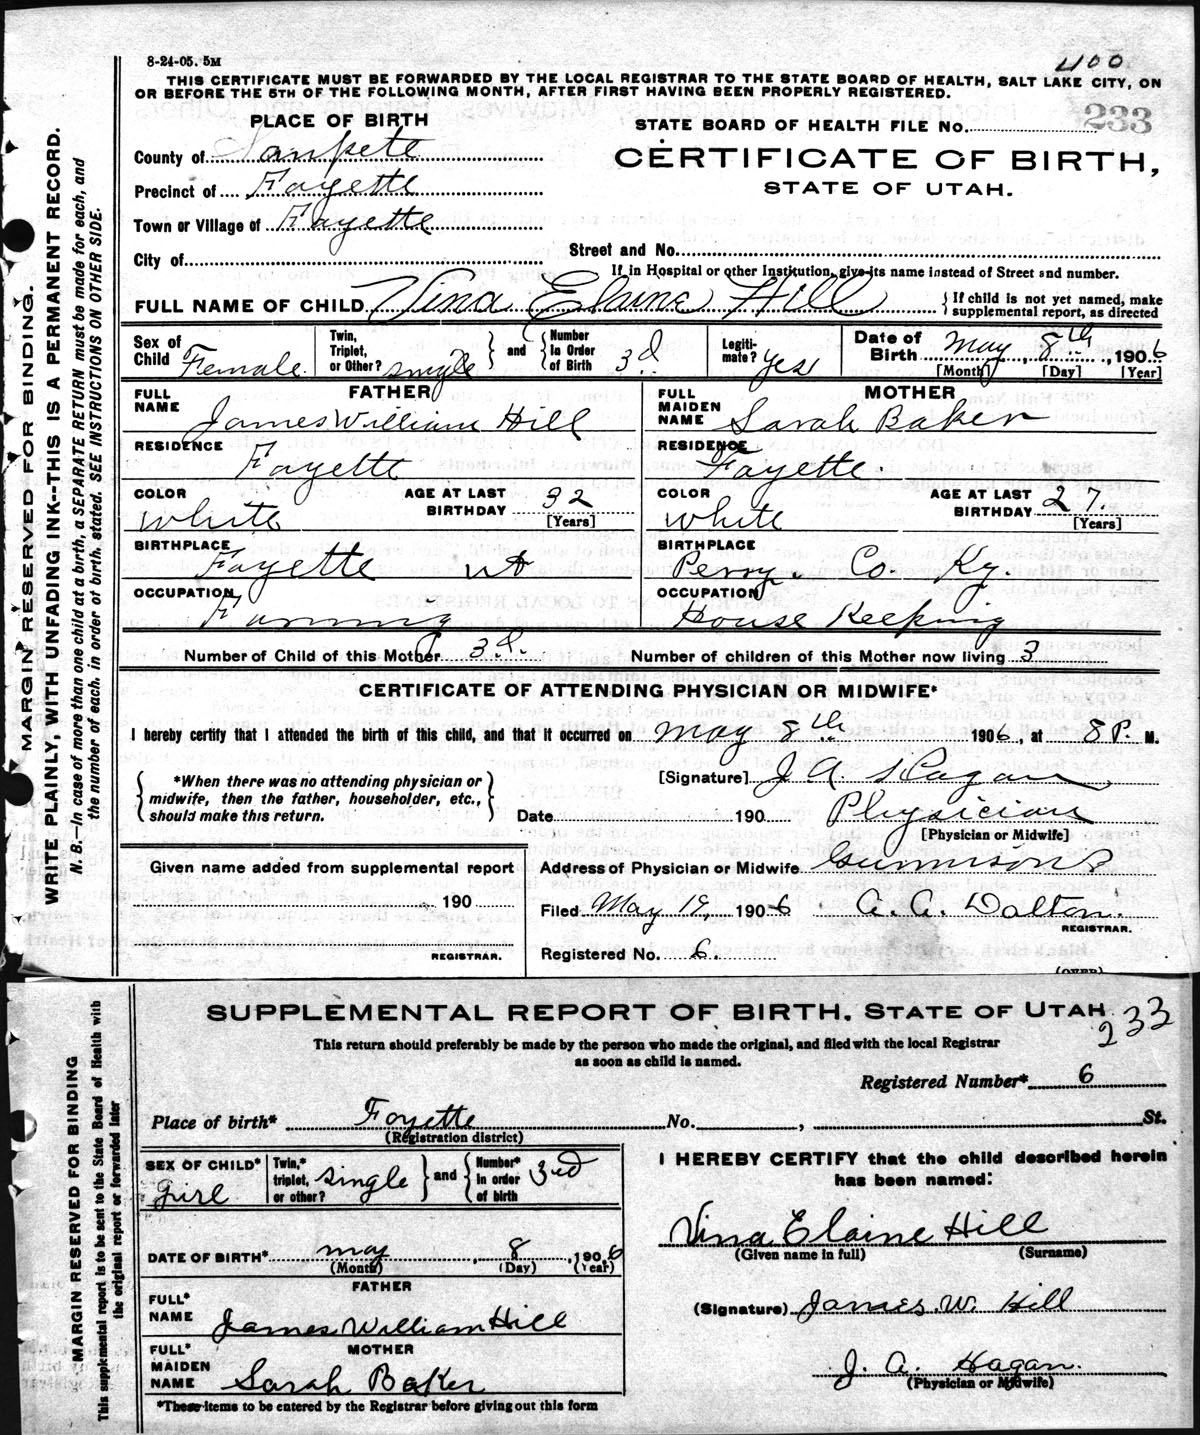 8-24-05. 5M
400
THIS CERTIFICATE MUST BE FORWARDED BY THE LOCAL REGISTRAR TO THE STATE BOARD OF HEALTH, SALT LAKE CITY, ON
OR BEFORE THE 5TH OF THE FOLLOWING MONTH, AFTER FIRST HAVING BEEN PROPERLY REGISTERED.
PLACE OF BIRTH
STATE BOARD OF HEALTH FILE No. 233
County of Sanpete
CERTIFICATE OF BIRTH,
STATE OF UTAH.
Precinct of Fayette
Town or Village of Fayette
City of
Street and No.
If in Hospital or other Institution, give its name instead of Street and number.
FULL NAME OF CHILD Vina Elaine Hill { If child is not yet named, make supplemental report, as directed
Sex of Child Female
Twin, Triplet, or Other? single } and { Number in Order of Birth 3d
Legitimate? Yes
Date of Birth May, 8th, 1906
[Month] [Day] [Year]
FATHER
FULL NAME James William Hill
RESIDENCE Fayette
COLOR White
AGE AT LAST BIRTHDAY 32
[Years]
BIRTHPLACE Fayette ut
OCCUPATION Farming
MOTHER
FULL MAIDEN NAME Sarah Baker
RESIDENCE Fayette.
COLOR White
AGE AT LAST BIRTHDAY 27.
[Years]
BIRTHPLACE Perry. Co. Ky.
OCCUPATION House Keeping
Number of Child of this Mother 3d.
Number of children of this Mother now living 3
CERTIFICATE OF ATTENDING PHYSICIAN OR MIDWIFE*
I hereby certify that I attended the birth of this child, and that it occurred on May 8th 1906, at 8 P. M.
{ *When there was no attending physician or
midwife, then the father, householder, etc.,
should make this return. }
[Signature] J A Hagan
Date 190 Physician
[Physician or Midwife]
Given name added from supplemental report
190
REGISTRAR.
Address of Physician or Midwife Gunnison
Filed May 19, 1906 A. A. Dalton.
REGISTRAR.
Registered No. 6.
(OVER)
MARGIN RESERVED FOR BINDING.
WRITE PLAINLY, WITH UNFADING INK--THIS IS A PERMANENT RECORD.
N. B.—In case of more than one child at a birth, a SEPARATE RETURN must be made for each, and
the number of each, in order of birth, stated. SEE INSTRUCTIONS ON OTHER SIDE.
SUPPLEMENTAL REPORT OF BIRTH, STATE OF UTAH
233
This return should preferably be made by the person who made the original, and filed with the local Registrar
as soon as child is named.
Registered Number* 6
Place of birth* Fayette No. , St.
(Registration district)
SEX OF CHILD* Girl
Twin,* triplet, or other? single } and { Number* in order of birth 3rd
DATE OF BIRTH* May, 8, 1906
(Month) (Day) (Year)
FATHER
FULL* NAME James William Hill
MOTHER
FULL* MAIDEN NAME Sarah Baker
*These items to be entered by the Registrar before giving out this form
I HEREBY CERTIFY that the child described herein
has been named:
Vina Elaine Hill
(Given name in full) (Surname)
(Signature) James W. Hill
J. A. Hagan.
(Physician or Midwife)
MARGIN RESERVED FOR BINDING
This supplemental report is to be sent to the State Board of Health with
the original report or forwarded later